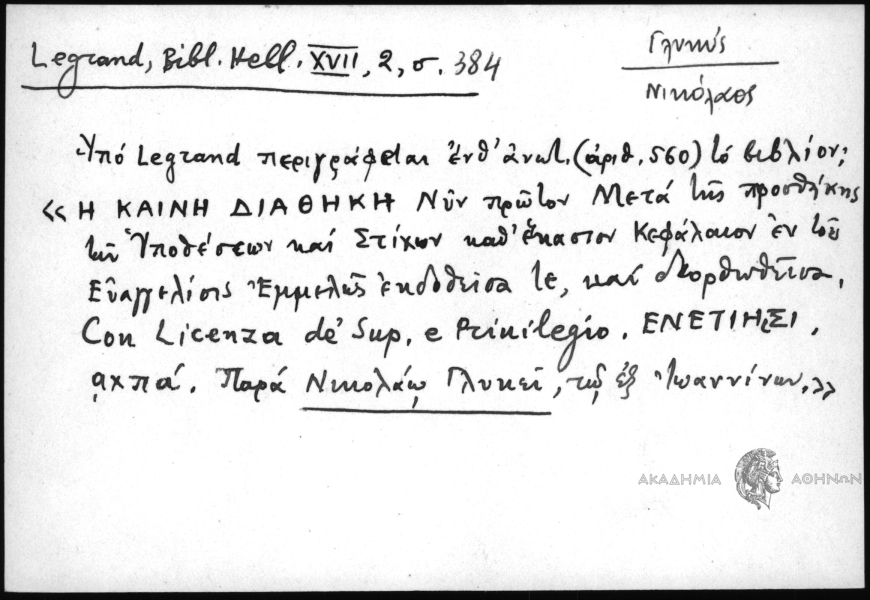 Legrand, Bibl. Hell. XVII, 2, σ. 384
Γλυκύς
Νικόλαος
Ὑπό Legrand περιγράφεται ἐνθ' ἀνωτ. (ἀριθ. 560) τό βιβλίον;
«Η ΚΑΙΝΗ ΔΙΑΘΗΚΗ Νῦν πρῶτον Μετά τῆς προσθήκης
τῶν Ὑποθέσεων καί Στίχων καθ' ἕκαστον Κεφάλαιον ἐν τοῖς
Εὐαγγελίοις Ἐμμελῶς ἐκδοθεῖσα τε, καί διορθωθεῖσα.
Con Licenza de' Sup. e Privilegio. ΕΝΕΤΙΗΣΙ,
αχπά. Παρά Νικολάῳ Γλυκεῖ, τῷ ἐξ Ἰωαννίνων.»
ΑΚΑΔΗΜΙΑ ΑΘΗΝΩΝ